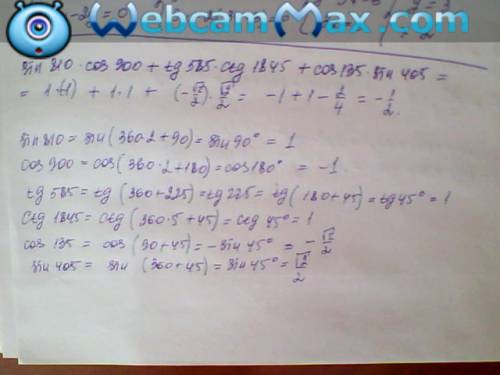 WebcamMax.com
sin 810 · cos 900 + tg 585 · ctg 1845 + cos 135 · sin 405 =
= 1·(-1) + 1·1 + (-√2/2)·√2/2 = -1+1-2/4 = -1/2.
sin 810 = sin(360·2+90) = sin 90° = 1
cos 900 = cos(360·2+180) = cos 180° = -1
tg 585 = tg(360+225) = tg 225 = tg(180+45) = tg 45° = 1
ctg 1845 = ctg(360·5+45) = ctg 45° = 1
cos 135 = cos(90+45) = -sin 45° = -√2/2
sin 405 = sin (360+45) = sin 45° = √2/2